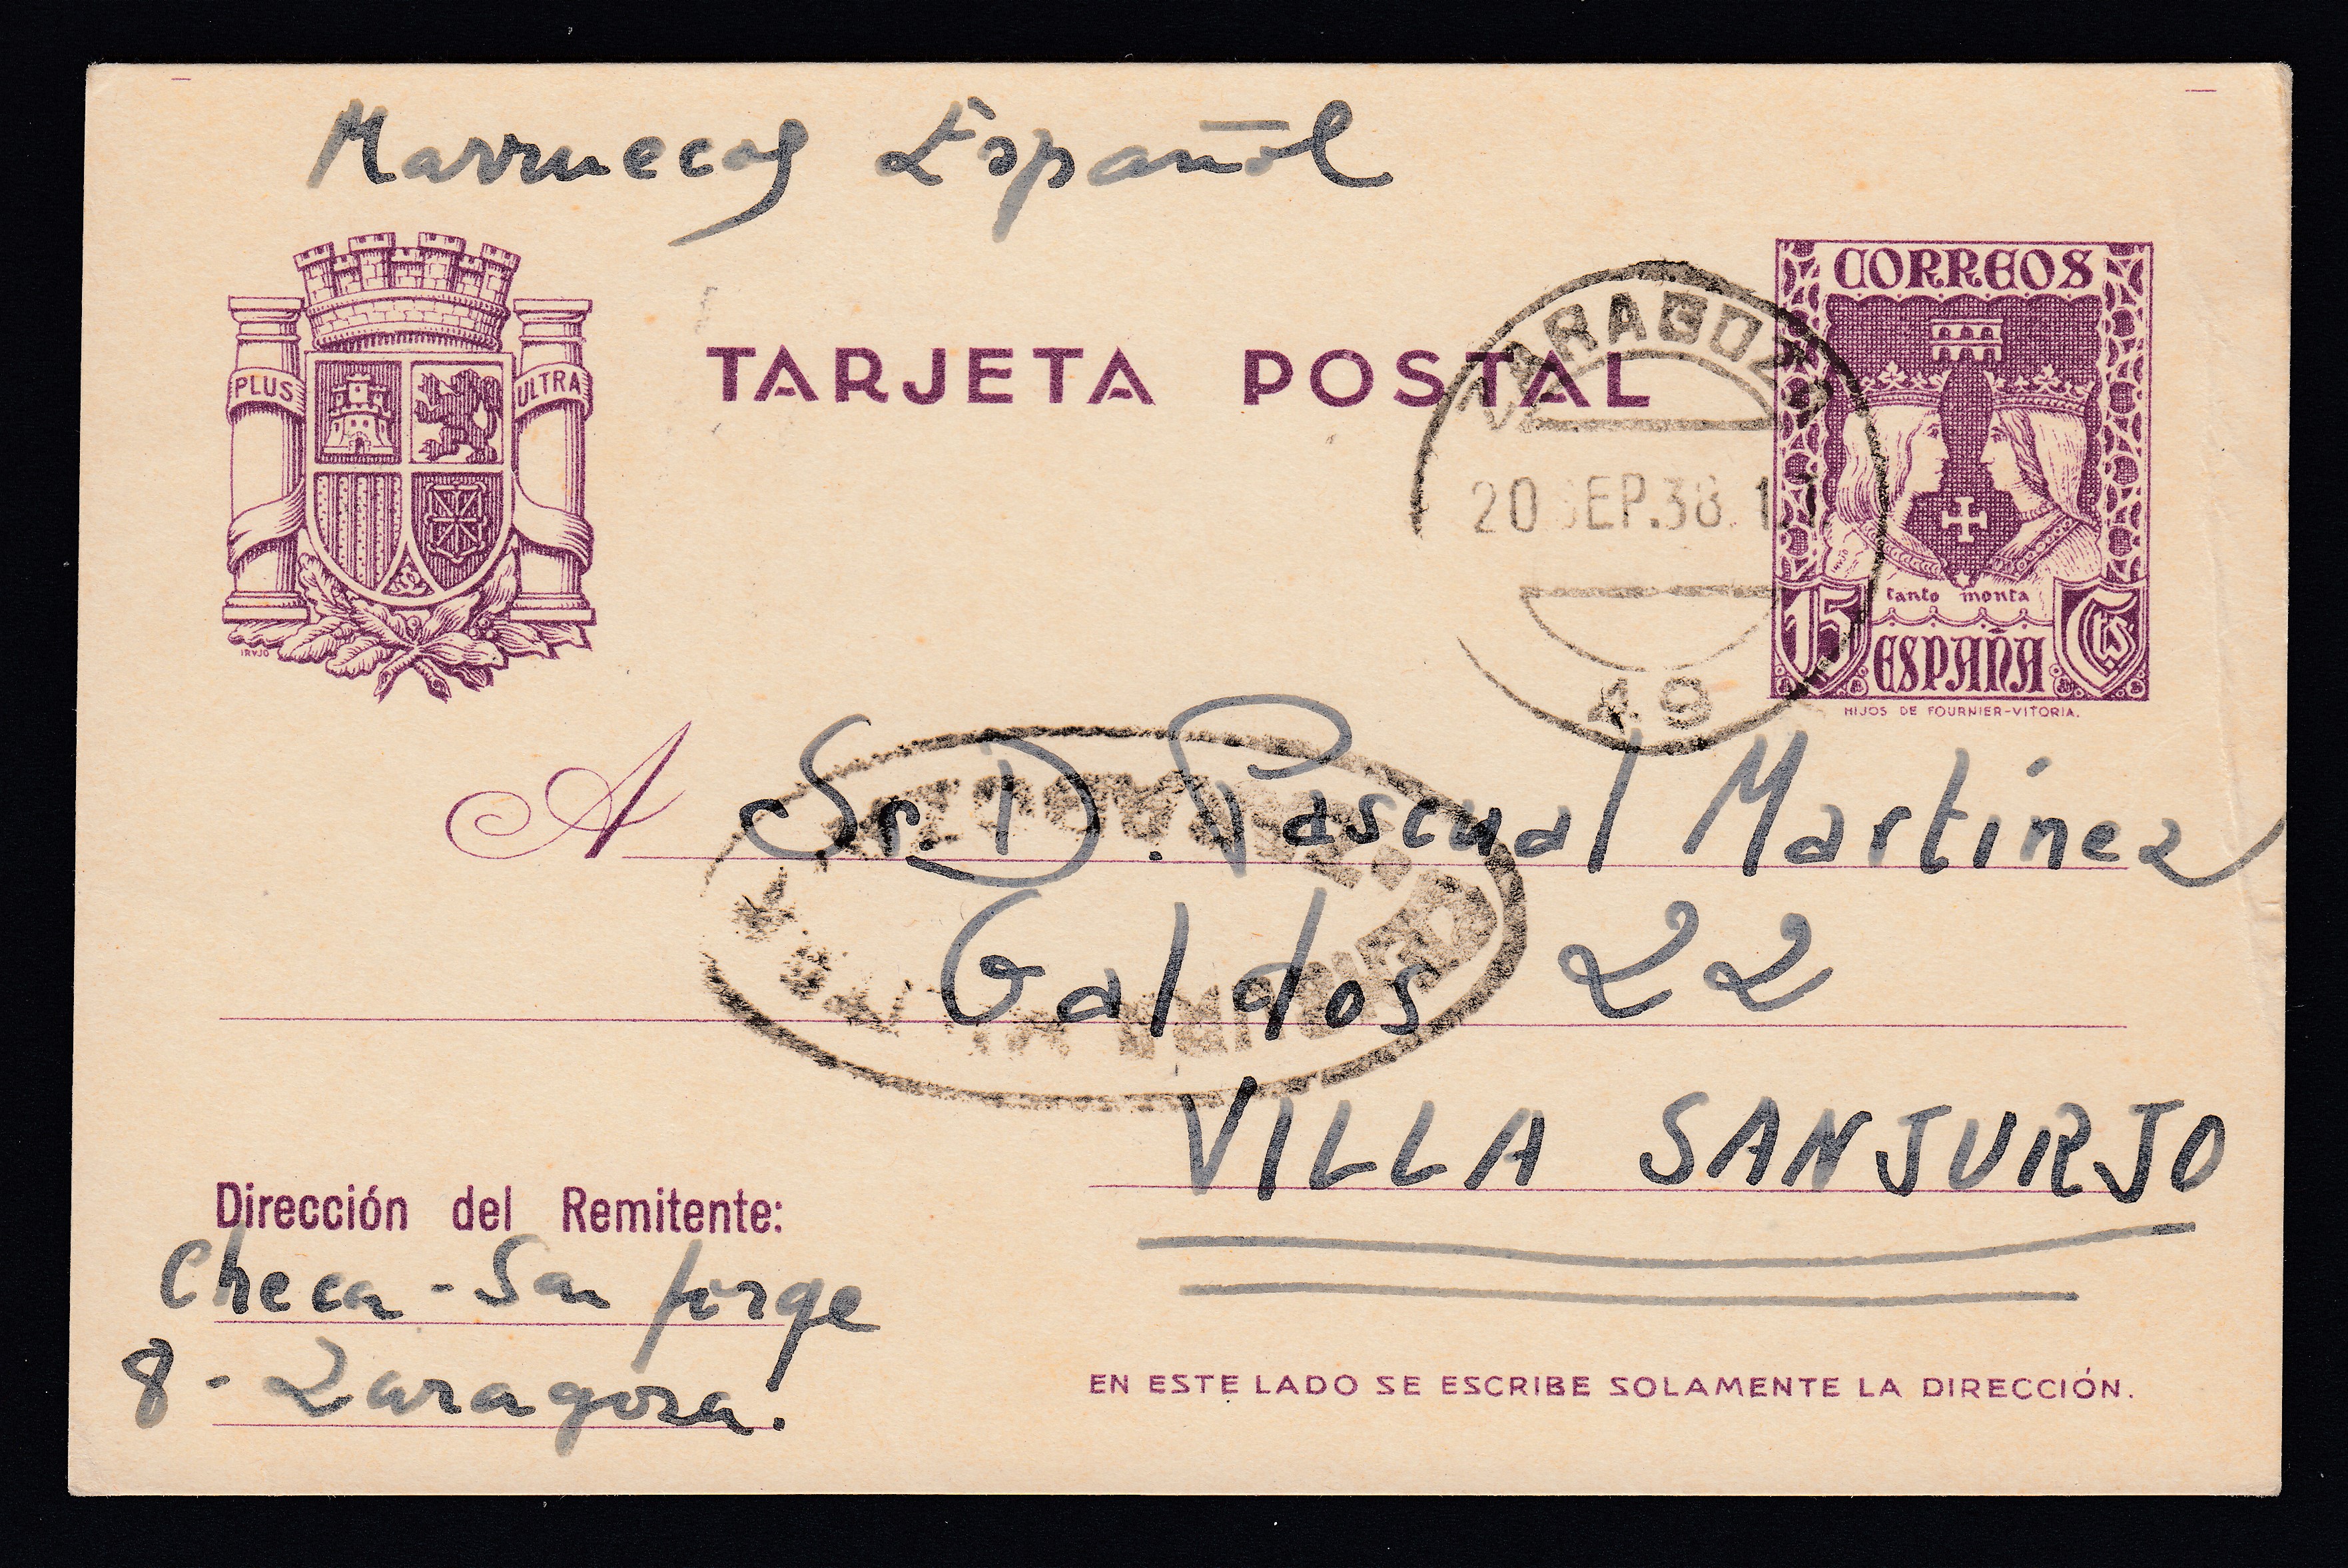 Marruecos Español
PLUS ULTRA
IRVJO
TARJETA POSTAL
ZARAGOZA
20 SEP.38
49
CORREOS
tanto monta
15 Cts
ESPAÑA
HIJOS DE FOURNIER-VITORIA.
A Sr. D. Pascual Martínez
Galdos 22
VILLA SANJURJO
Dirección del Remitente:
Checa - San Jorge
8 - Zaragoza.
EN ESTE LADO SE ESCRIBE SOLAMENTE LA DIRECCIÓN.